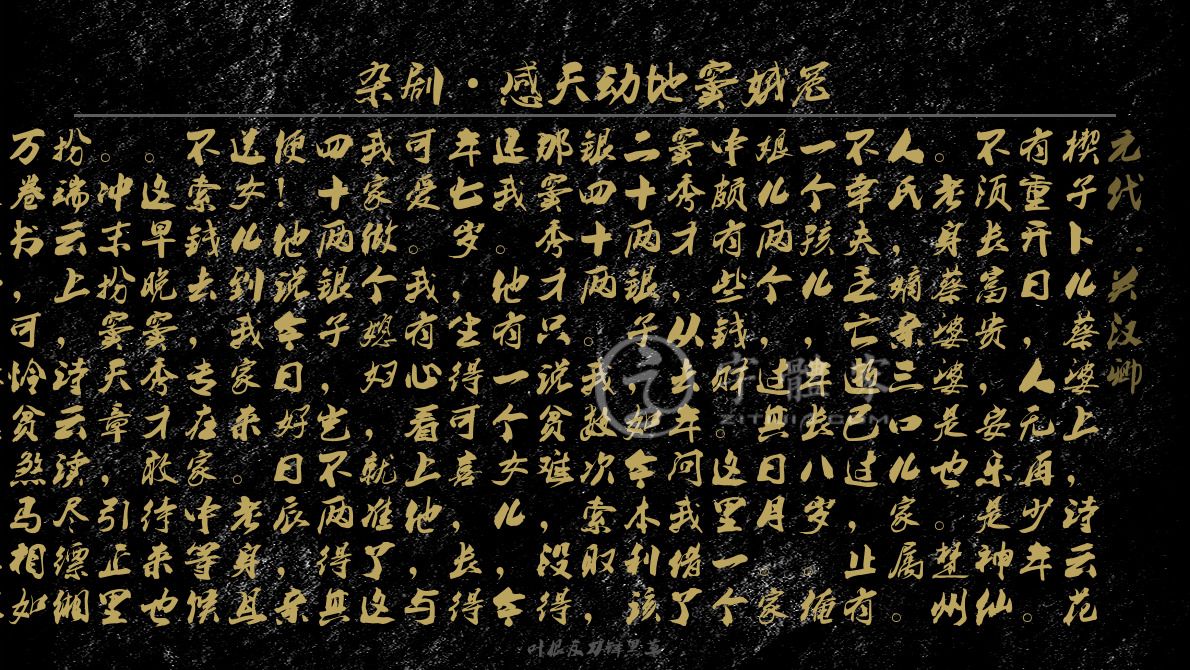 杂剧·感天动地窦娥冤
元代·关汉卿
楔子卜儿蔡婆上，诗云花
有重开日，人无再少年。
不须长富贵，安乐是神仙
。老身蔡婆婆是也。楚州
人氏，嫡亲三口儿家属。
不幸夫主亡逝已过，止有
一个孩儿，年长八岁。俺
娘儿两个，过其日月。家
中颇有些钱财。这里一个
窦秀才，从去年问我借了
二十两银子，如今本利该
银四十两。我数次索取，
那窦秀才只说贫难，没得
还我。他有一个女儿，今
年七岁，生得可喜，长得
可爱。我有心看上他，与
我家做个媳妇，就准了这
四十两银子，岂不两得其
便！他说今日好日辰，亲
送女儿到我家来。老身且
不索钱去，专在家中等候
。这早晚窦秀才敢待来也
。冲末扮窦天章，引正里
扮端云上，诗云渎尽缥缃
万卷书，可怜贫煞马相如
字體家
ZITIJIA.COM
叶根友刀锋黑草